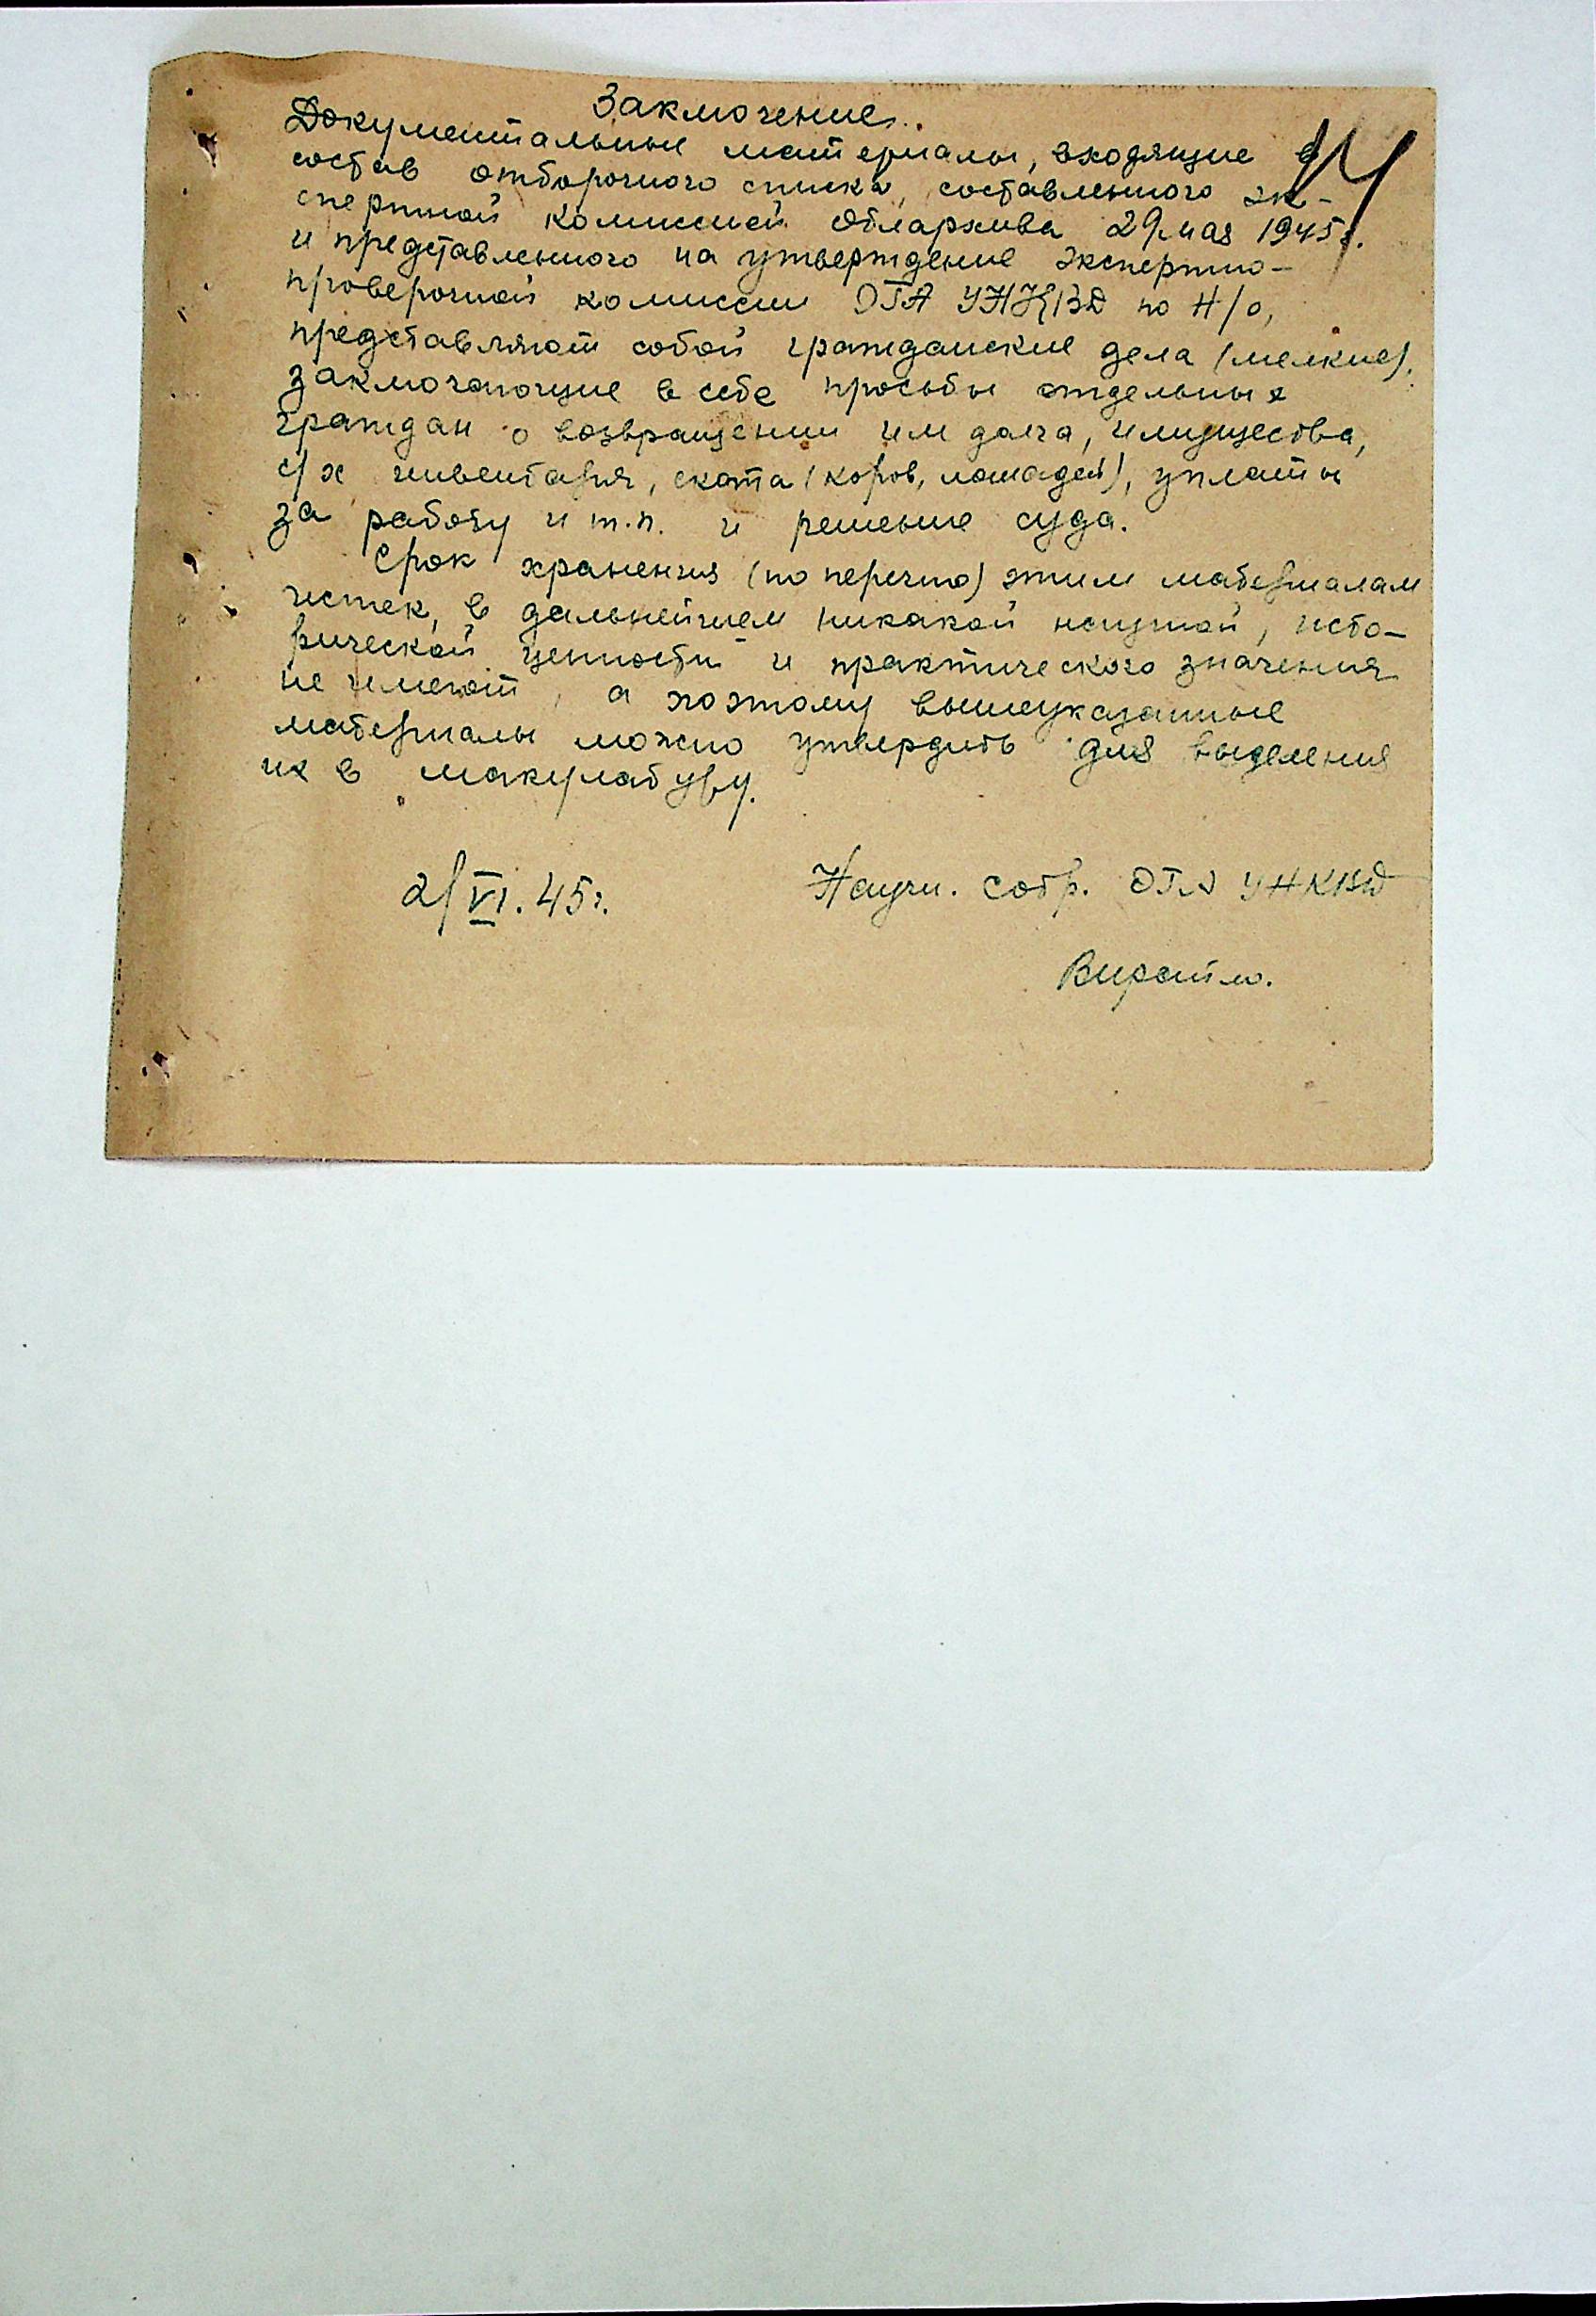 Заключение.
Документальные материалы, входящие в
состав отборочного списка, составленного эк-
спертной комиссией Облархива 29 мая 1945 г.
и представленного на утверждение экспертно-
проверочной комиссии ОГА УНКВД по Н/о,
представляют собой гражданские дела (мелкие),
заключающие в себе просьбы отдельных
граждан о возвращении им долга, имущества,
с/х инвентаря, скота (коров, лошадей), уплаты
за работу и т.п. и решение суда.
Срок хранения (по перечню) этим материалам
истек, в дальнейшем никакой научной, исто-
рической ценности и практического значения
не имеют, а поэтому вышеуказанные
материалы можно утвердить для выделения
их в макулатуру.
2/VI.45г.
Научн. сотр. ОГА УНКВД